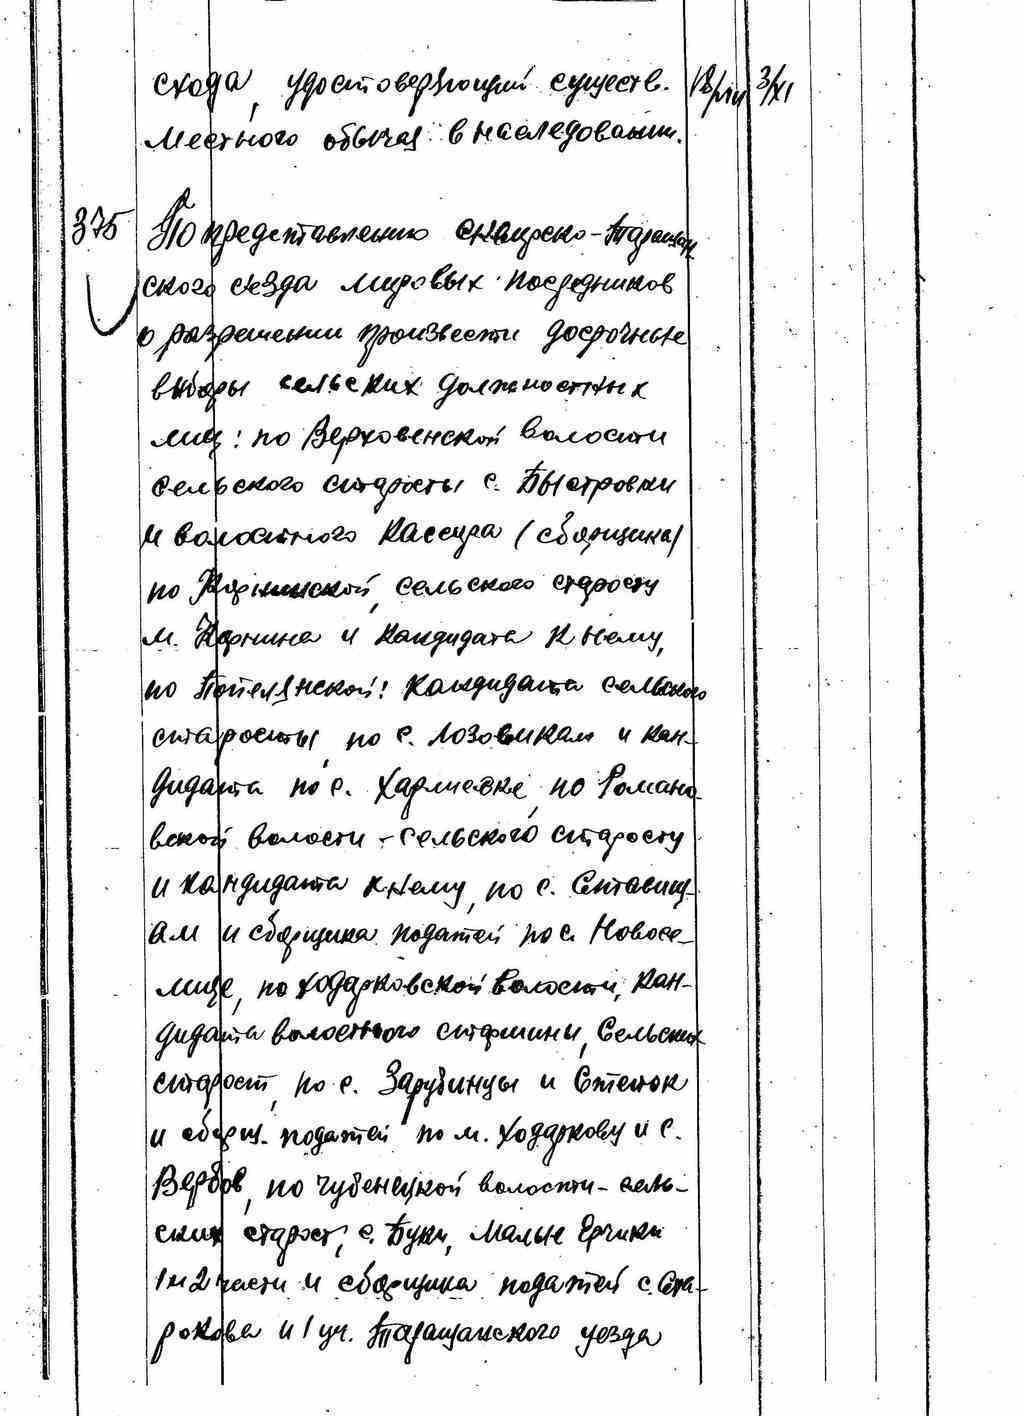 схода, удостоверяющий существ. 3/XI
местного обычая в наследовании.
375 По представлению сквирско-Таращан
ского съезда мировых посредников
о разрешении произвести досрочные
выборы сельских должностных
лиц: по Верховенской волости
сельского старосты с. Быстровки
и волостного кассира (сборщика)
по Корнинской, сельского старосту
м. Корнина и кандидата к нему,
по Попелянской: кандидата сельского
старосты, по с. Лозовикам и кан-
дидата по с. Харлиевке, по Романо-
вской волости - сельского старосту
и кандидата к нему, по с. Ставищ-
ам и сборщика податей по с. Новосе-
лице, по Ходорковской волости, кан-
дидата волостного старшины, сельских
старост, по с. Зарубинцы и Степок
и сборщ. податей по м. Ходоркову и с.
Вербов, по Чубенецкой волости - сель-
ских старост, с. Буки, Малые Ерчики
1 и 2 части и сборщика податей с. Ста-
рокова и 1 уч. Таращанского уезда